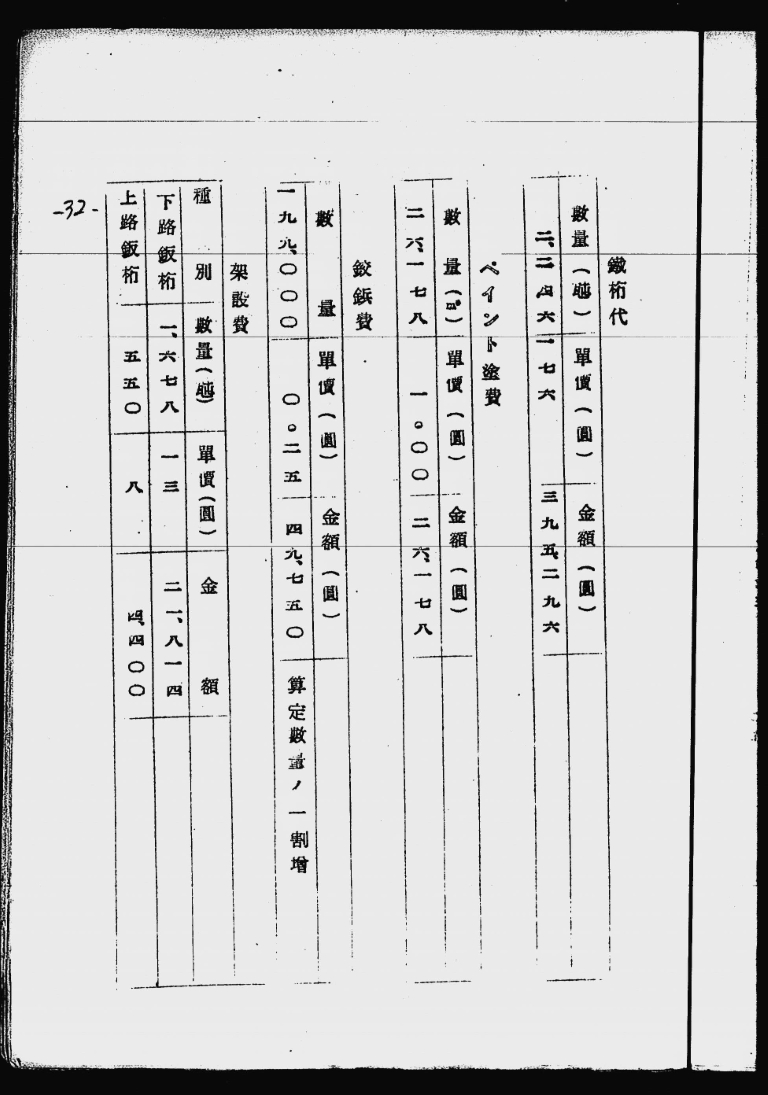 鐵桁代
數量(瓲) 單價(圓) 金額(圓)
二、二四六 一七六 三九五、二九六
ペイント塗費
數量(㎡) 單價(圓) 金額(圓)
二六、一七八 一。〇〇 二六、一七八
鉸鋲費
數量 單價(圓) 金額(圓)
一九九、〇〇〇 〇。二五 四九、七五〇 算定數量ノ一割增
架設費
種別 數量(瓲) 單價(圓) 金額
下路鈑桁 一、六七八 一三 二一、八一四
上路鈑桁 五五〇 八 四、四〇〇
-32-